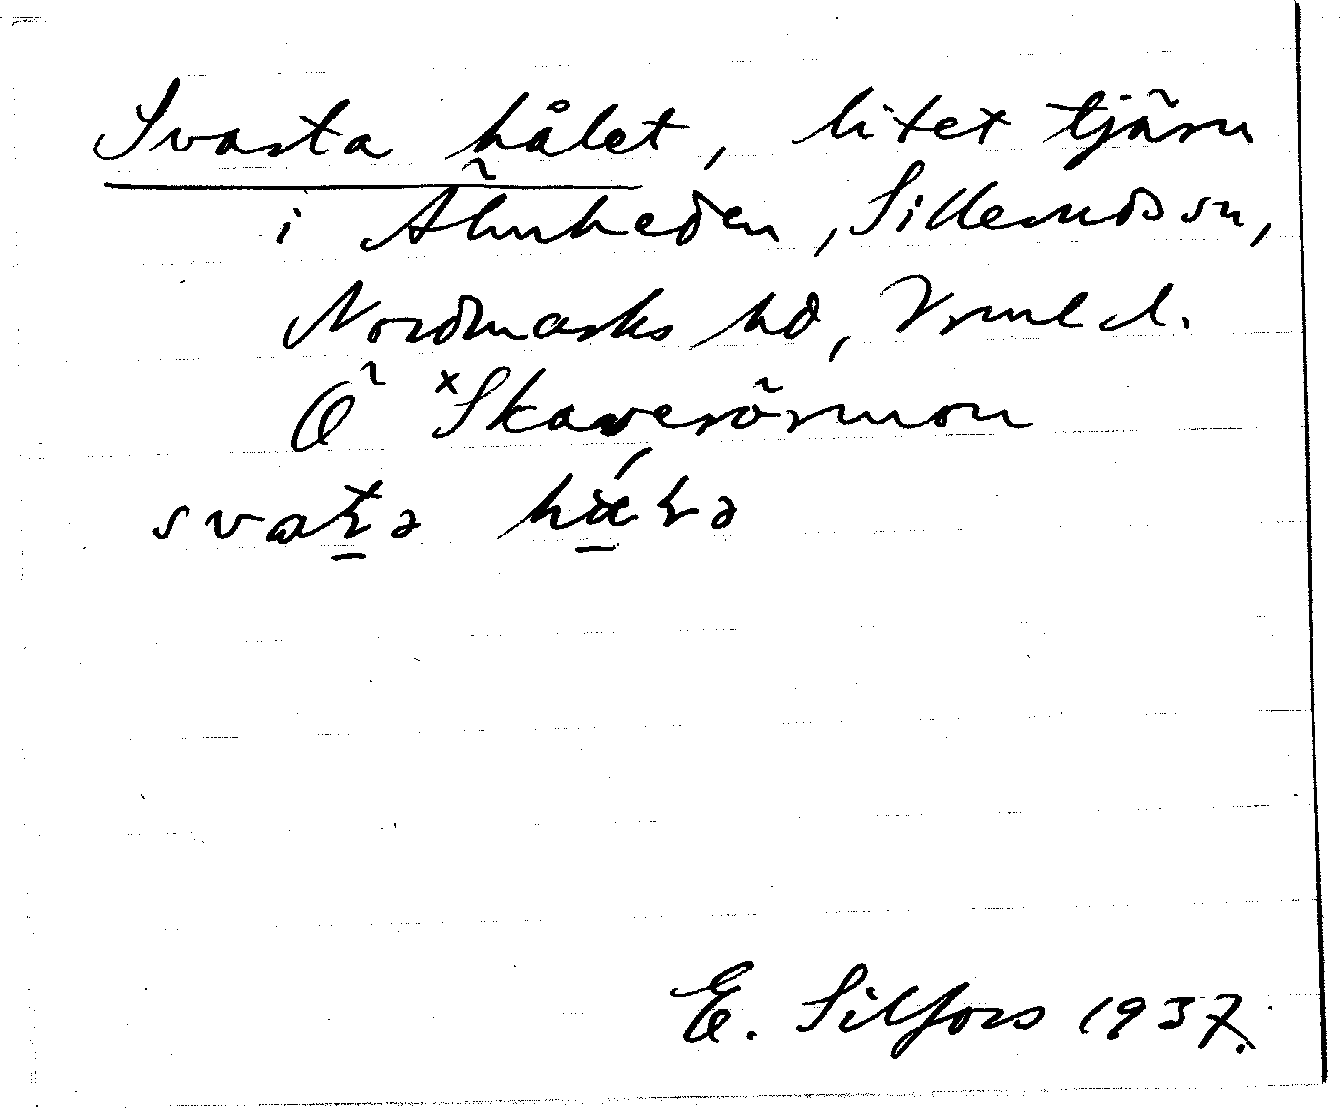 Svarta hålet, litet tjärn
i Älmheden, Sillerudss sn,
Nordmarks hd, Vrml d.
Ö ˣSkaverörmon
E. Silfors 1937.